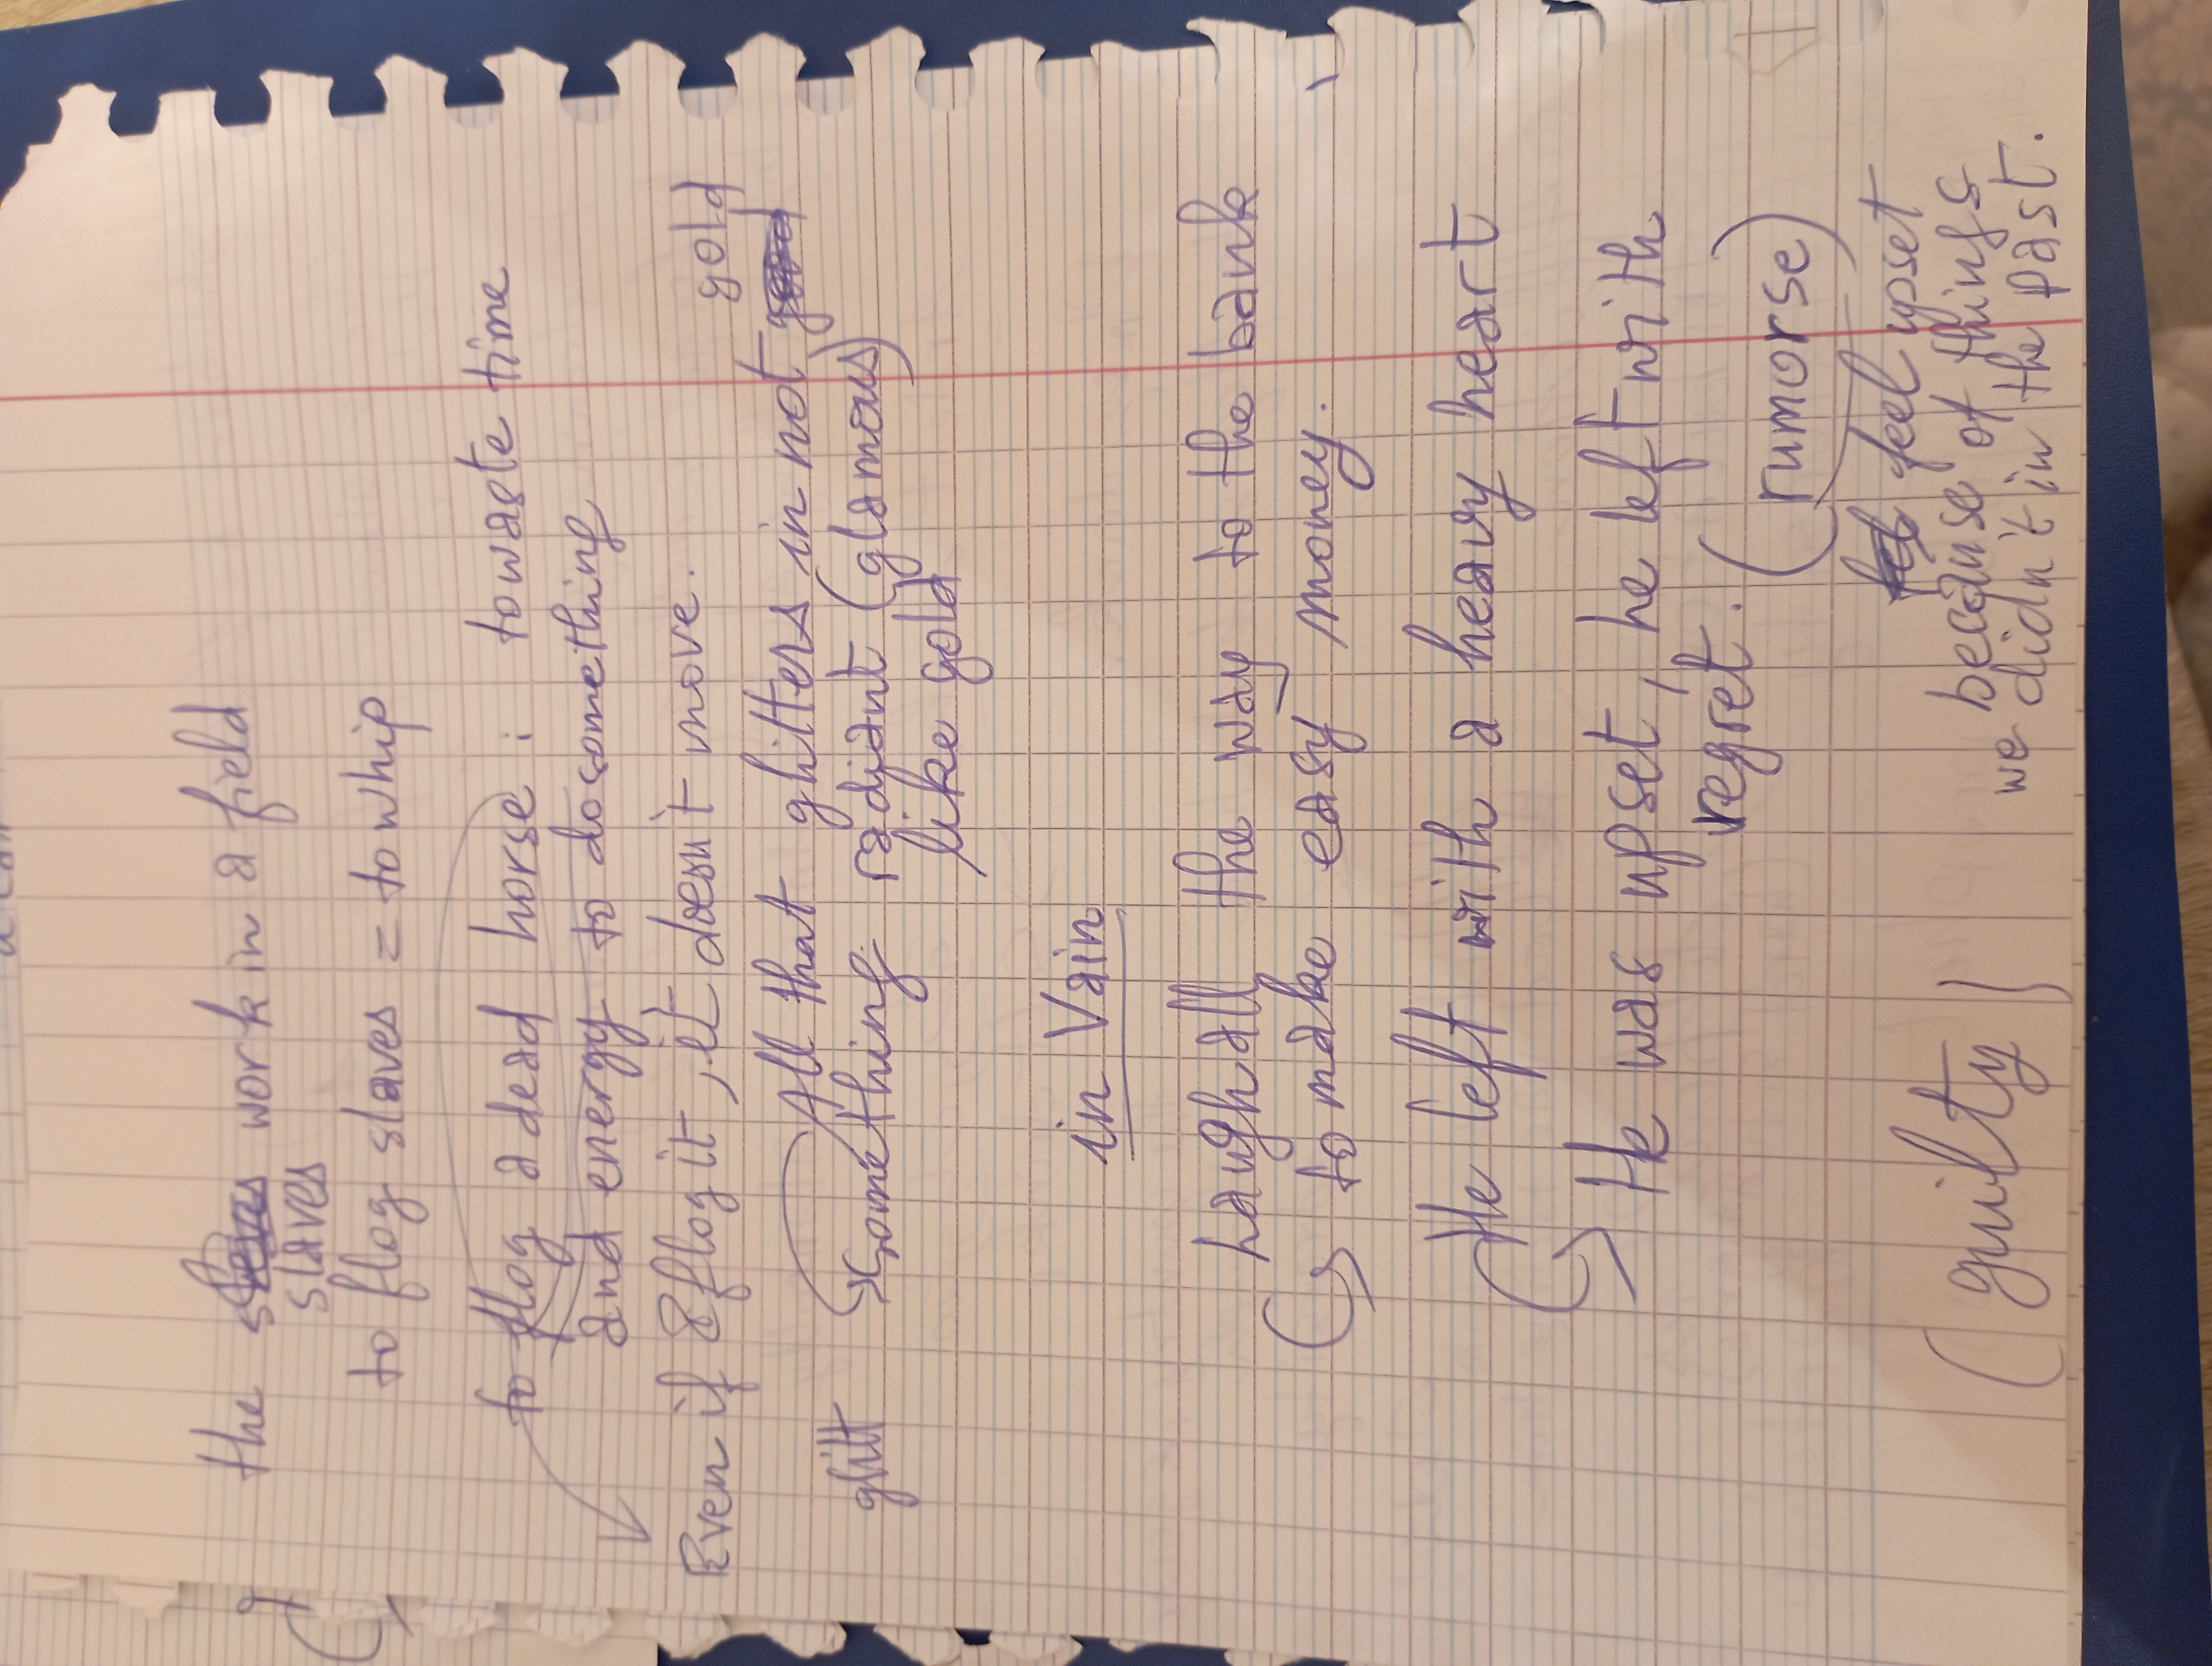 the slaves work in a field
to flog slaves = to whip
to flog a dead horse: to waste time
and energy to do something
Even if I flog it, it doesn't move.
gold
All that glitters in not
glitt something radiant (glamous)
like gold
in Vain
Laugh all the way to the bank
to make easy money.
He left with a heavy heart
He was upset, he left with
regret. (rumorse)
feel upset
(guilty) because of things
we didn't in the past.